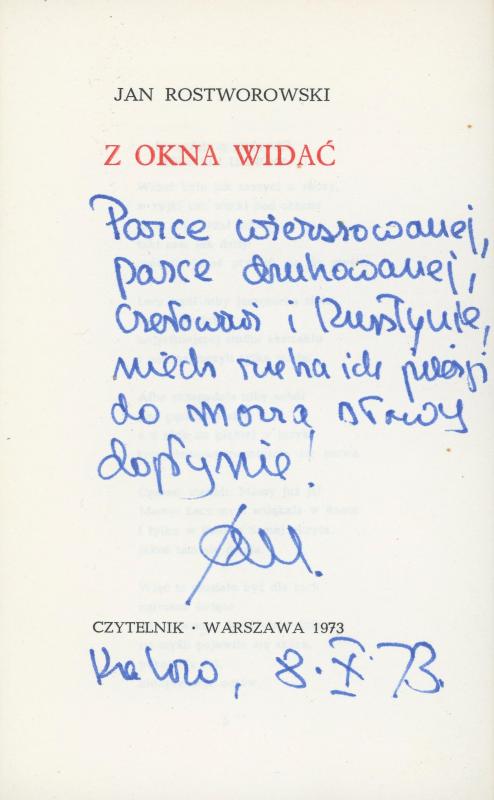 JAN ROSTWOROWSKI
Z OKNA WIDAĆ
Parce wierszowanej,
parce drukowanej,
Czesławowi i Krystynie,
niech rzeka ich poezji
do morza sławy
dopłynie!
Jan.
CZYTELNIK · WARSZAWA 1973
Kraków, 8. X. 73.